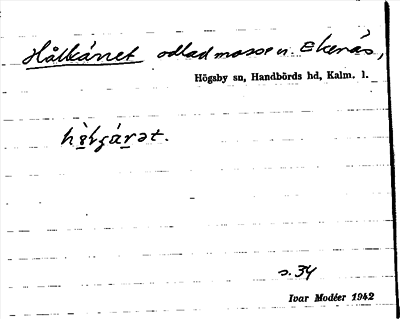 Hålkärret odlad mosse n. Ekenäs,
Högsby sn, Handbörds hd, Kalm. l.
s. 34
Ivar Modéer 1942